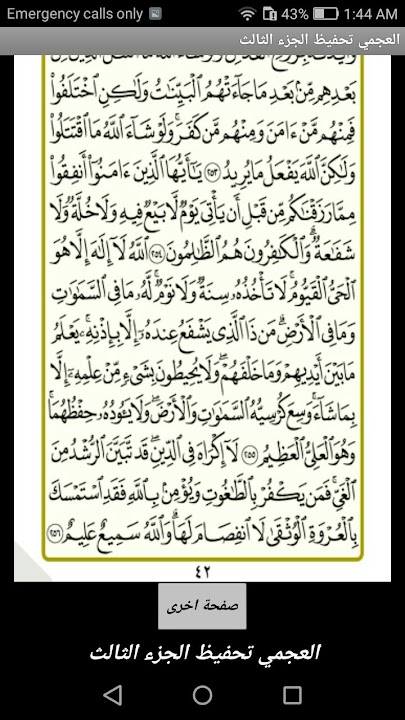 Emergency calls only 43% 1:44 AM
العجمي تحفيظ الجزء الثالث
بَعْدِهِم مِّنۢ بَعْدِ مَا جَآءَتْهُمُ ٱلْبَيِّنَٰتُ وَلَٰكِنِ ٱخْتَلَفُوا۟
فَمِنْهُم مَّنْ ءَامَنَ وَمِنْهُم مَّن كَفَرَ ۚ وَلَوْ شَآءَ ٱللَّهُ مَا ٱقْتَتَلُوا۟
وَلَٰكِنَّ ٱللَّهَ يَفْعَلُ مَا يُرِيدُ ٢٥٣ يَٰٓأَيُّهَا ٱلَّذِينَ ءَامَنُوٓا۟ أَنفِقُوا۟
مِمَّا رَزَقْنَٰكُم مِّن قَبْلِ أَن يَأْتِىَ يَوْمٌ لَّا بَيْعٌ فِيهِ وَلَا خُلَّةٌ وَلَا
شَفَٰعَةٌ ۗ وَٱلْكَٰفِرُونَ هُمُ ٱلظَّٰلِمُونَ ٢٥٤ ٱللَّهُ لَآ إِلَٰهَ إِلَّا هُوَ
ٱلْحَىُّ ٱلْقَيُّومُ ۚ لَا تَأْخُذُهُۥ سِنَةٌ وَلَا نَوْمٌ ۚ لَّهُۥ مَا فِى ٱلسَّمَٰوَٰتِ
وَمَا فِى ٱلْأَرْضِ ۗ مَن ذَا ٱلَّذِى يَشْفَعُ عِندَهُۥٓ إِلَّا بِإِذْنِهِۦ ۚ يَعْلَمُ
مَا بَيْنَ أَيْدِيهِمْ وَمَا خَلْفَهُمْ ۖ وَلَا يُحِيطُونَ بِشَىْءٍ مِّنْ عِلْمِهِۦٓ إِلَّا
بِمَا شَآءَ ۚ وَسِعَ كُرْسِيُّهُ ٱلسَّمَٰوَٰتِ وَٱلْأَرْضَ ۖ وَلَا يَـُٔودُهُۥ حِفْظُهُمَا ۚ
وَهُوَ ٱلْعَلِىُّ ٱلْعَظِيمُ ٢٥٥ لَآ إِكْرَاهَ فِى ٱلدِّينِ ۖ قَد تَّبَيَّنَ ٱلرُّشْدُ مِنَ
ٱلْغَىِّ ۚ فَمَن يَكْفُرْ بِٱلطَّٰغُوتِ وَيُؤْمِنۢ بِٱللَّهِ فَقَدِ ٱسْتَمْسَكَ
بِٱلْعُرْوَةِ ٱلْوُثْقَىٰ لَا ٱنفِصَامَ لَهَا ۗ وَٱللَّهُ سَمِيعٌ عَلِيمٌ ٢٥٦
٤٢
صفحة اخرى
العجمي تحفيظ الجزء الثالث